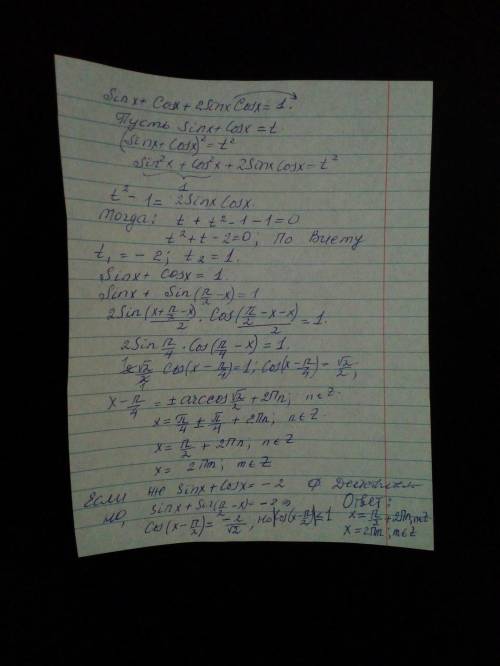 Sinx + Cosx + 2SinxCosx = 1.
Пусть Sinx + Cosx = t
(Sinx + Cosx)² = t²
Sin²x + cos²x + 2SinxCosx = t²
1
t² - 1 = 2SinxCosx.
Тогда: t + t² - 1 - 1 = 0
t² + t - 2 = 0; По Виету
t₁ = - 2; t₂ = 1.
Sinx + Cosx = 1.
Sinx + Sin(π/2 - x) = 1
2Sin (x + π/2 - x)/2 · Cos (π/2 - x - x)/2 = 1.
2Sin π/4 · Cos(π/4 - x) = 1.
Cos(x - π/4) = 1; Cos(x - π/4) = √2/2;
x - π/4 = ± arccos √2/2 + 2πn; n∈Z
x = π/4 ± π/4 + 2πn; n∈Z
x = π/2 + 2πn; n∈Z
x = 2πm; m∈Z
Если же Sinx + Cosx = - 2 ∅ Действитель-
но, Sinx + Sin(π/2 - x) = - 2 ⇒
Cos(x - π/2) = -2/√2, но |Cos(x - π/2)| ≤ 1
Ответ:
x = π/2 + 2πn, n∈Z
x = 2πm, m∈Z